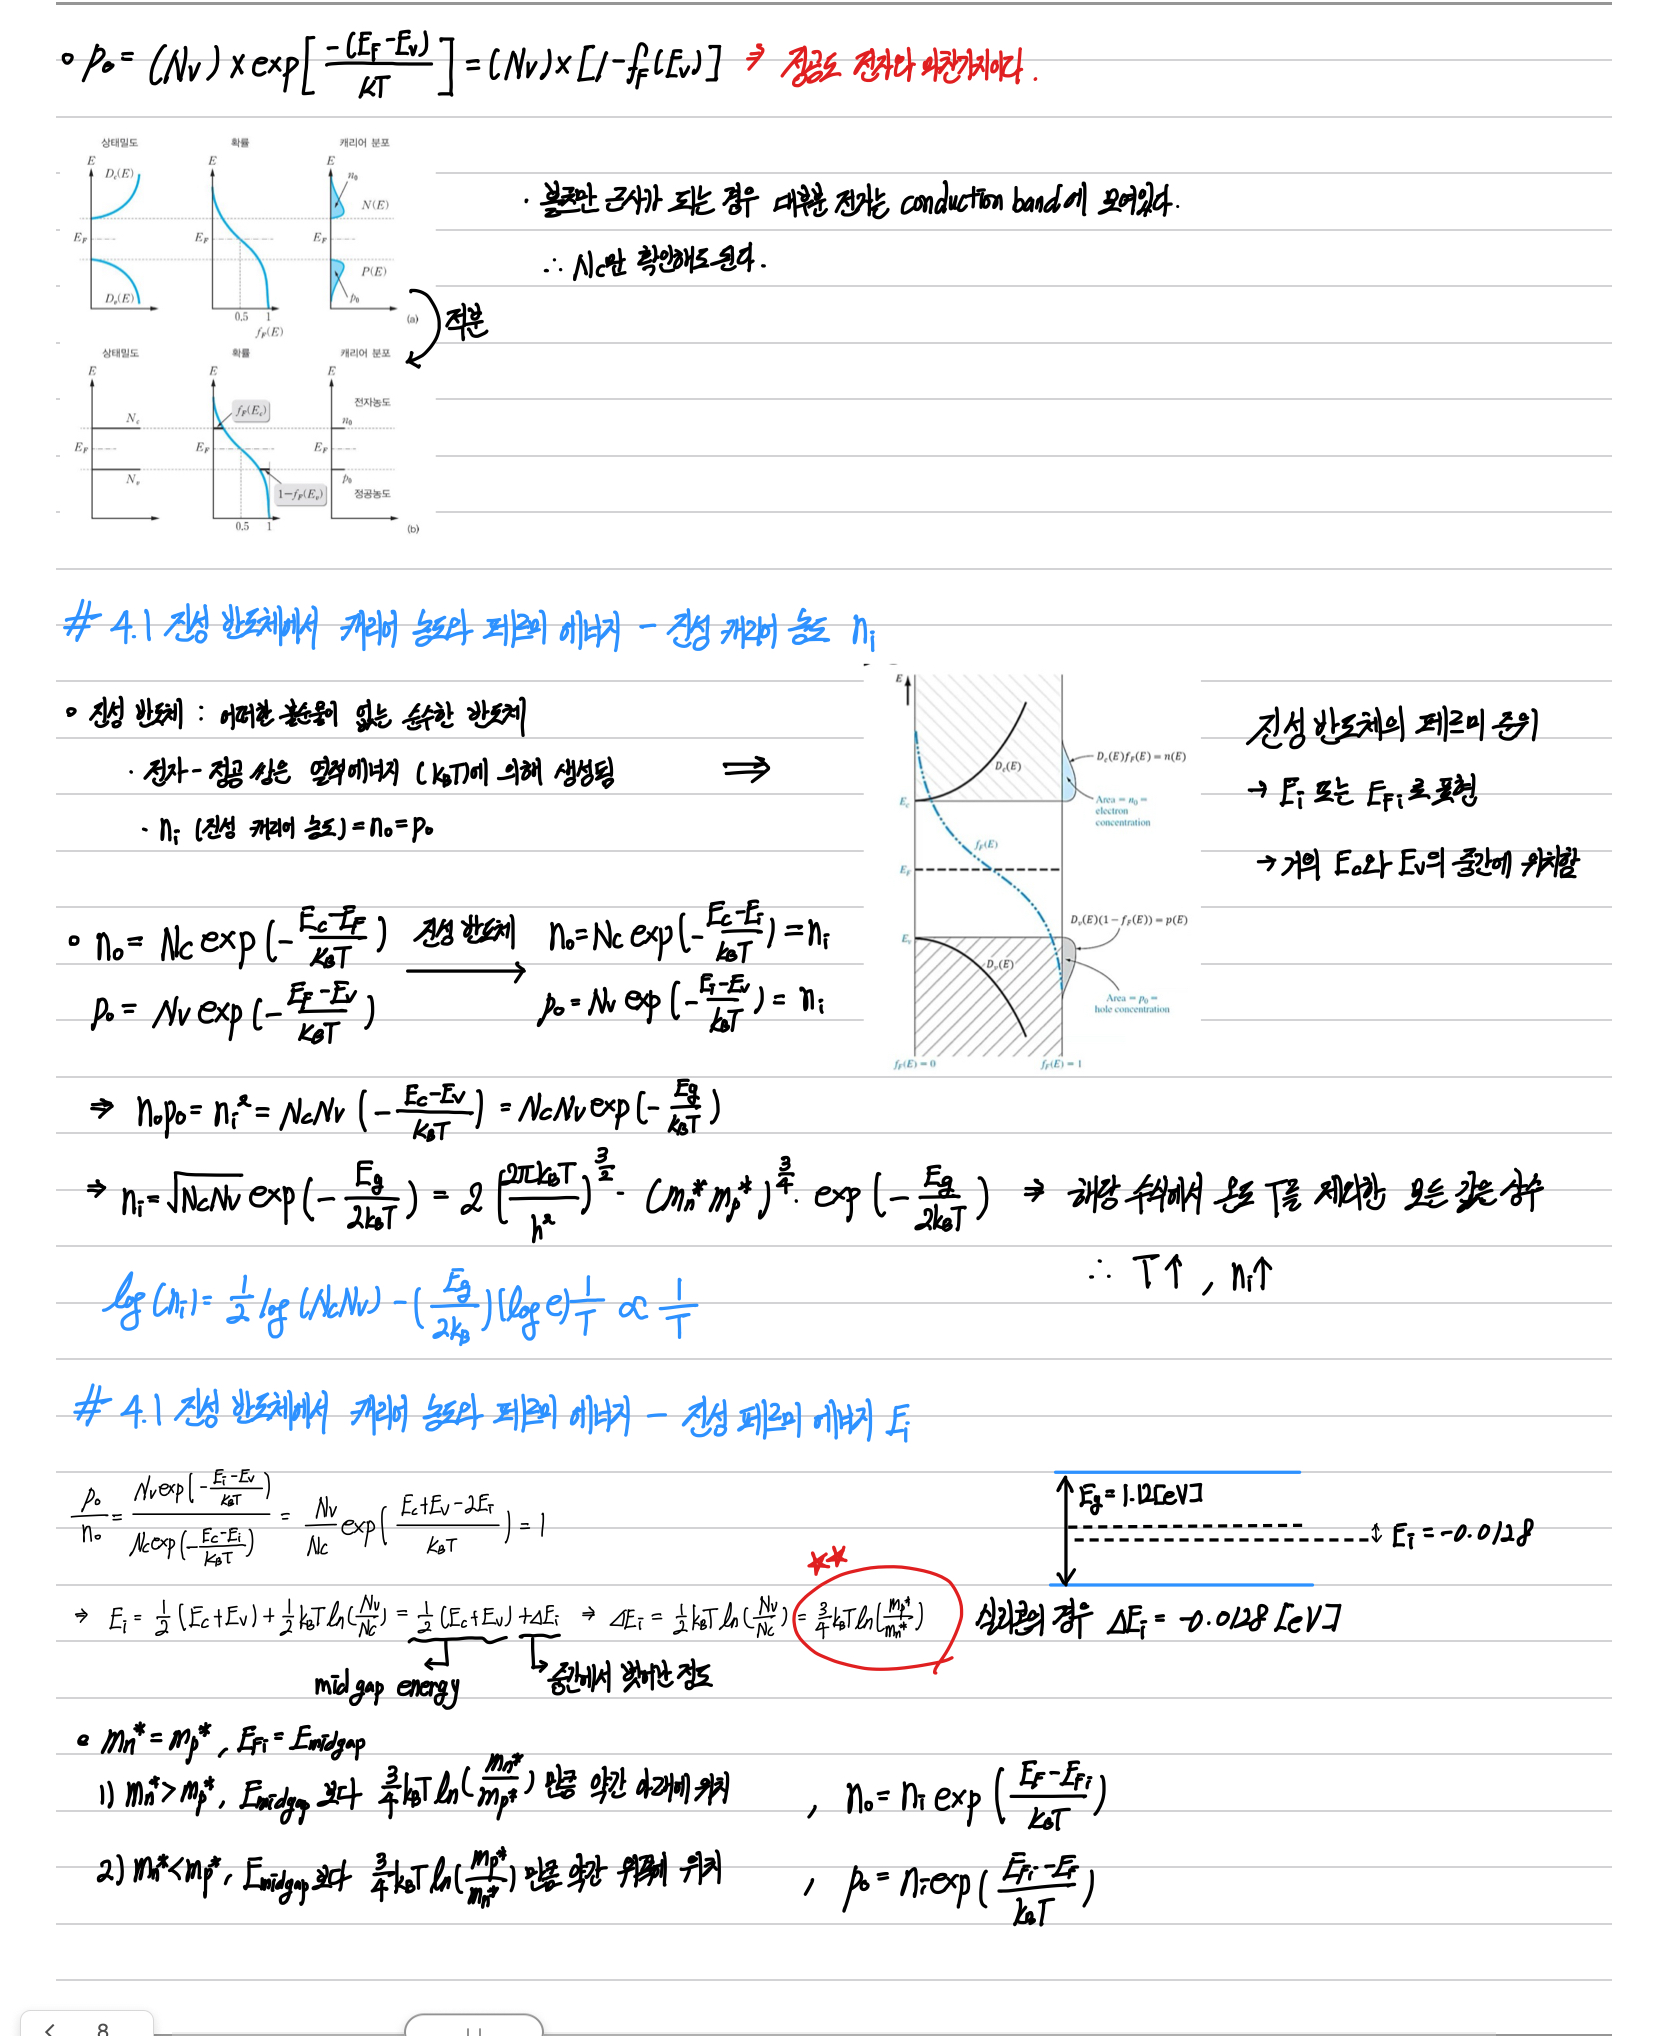 ∘ p₀ = (Nv) × exp[-(E_F-Ev)/KT] = (Nv) × [1-f_F(Ev)] ⇒ 정공도 전자와 마찬가지이다.
상태밀도 확률 캐리어 분포
E E E
D_c(E) n₀ N(E)
E_F E_F E_F
D_v(E) P(E) p₀
0.5 1 f_F(E) (a)
· 볼츠만 근사가 되는 경우 대부분 전자는 conduction band에 모여있다.
∴ Nc만 확인해도 된다.
적분
상태밀도 확률 캐리어 분포
E E E
N_c f_F(E_c) 전자농도 n₀
E_F E_F E_F
N_v 1-f_F(E_v) p₀ 정공농도
0.5 1 (b)
# 4.1 진성 반도체에서 캐리어 농도와 페르미 에너지 - 진성 캐리어 농도 nᵢ
∘ 진성 반도체 : 어떠한 불순물이 없는 순수한 반도체
· 전자-정공 쌍은 열적에너지 (k_BT)에 의해 생성됨 ⇒
· nᵢ (진성 캐리어 농도) = n₀ = p₀
E
D_c(E) D_c(E)f_F(E) = n(E)
E_c Area = n₀ = electron concentration
f_F(E)
E_F
D_v(E)(1 - f_F(E)) = p(E)
E_v D_v(E)
Area = p₀ = hole concentration
f_F(E) = 0 f_F(E) = 1
진성 반도체의 페르미 준위
→ Eᵢ 또는 E_Fi로 표현
→ 거의 Ec와 Ev의 중간에 위치함
∘ n₀ = Nc exp(-(Ec-E_F)/k_BT) 진성 반도체 → n₀ = Nc exp(-(Ec-Eᵢ)/k_BT) = nᵢ
p₀ = Nv exp(-(E_F-Ev)/k_BT) p₀ = Nv exp(-(Eᵢ-Ev)/k_BT) = nᵢ
⇒ n₀p₀ = nᵢ² = NcNv (-(Ec-Ev)/k_BT) = NcNv exp(-Eg/k_BT)
⇒ nᵢ = √(NcNv) exp(-Eg/2k_BT) = 2 (2πk_BT/h²)^(3/2) · (mn* mp*)^(3/4) · exp(-Eg/2k_BT) ⇒ 해당 수식에서 온도 T를 제외한 모든 값은 상수
∴ T↑ , nᵢ↑
log(nᵢ) = 1/2 log(NcNv) - (Eg/2k_B)(log e) 1/T ∝ 1/T
# 4.1 진성 반도체에서 캐리어 농도와 페르미 에너지 - 진성 페르미 에너지 Eᵢ
p₀/n₀ = Nv exp(-(Eᵢ-Ev)/k_BT) / Nc exp(-(Ec-Eᵢ)/k_BT) = Nv/Nc exp((Ec+Ev-2Eᵢ)/k_BT) = 1
Eg = 1.12[eV]
Eᵢ = -0.0128
⇒ Eᵢ = 1/2 (Ec+Ev) + 1/2 k_BT ln(Nv/Nc) = 1/2 (Ec+Ev) + ΔEᵢ ⇒ ΔEᵢ = 1/2 k_BT ln(Nv/Nc) = 3/4 k_BT ln(mp*/mn*) 실리콘의 경우 ΔEᵢ = -0.0128 [eV]
midgap energy 중간에서 벗어난 정도
∘ mn* = mp*, E_Fi = E_midgap
1) mn* > mp*, E_midgap 보다 3/4 k_BT ln(mn*/mp*) 만큼 약간 아래에 위치 , n₀ = nᵢ exp((E_F-E_Fi)/k_BT)
2) mn* < mp*, E_midgap 보다 3/4 k_BT ln(mp*/mn*) 만큼 약간 위쪽에 위치 , p₀ = nᵢ exp((E_Fi-E_F)/k_BT)
8